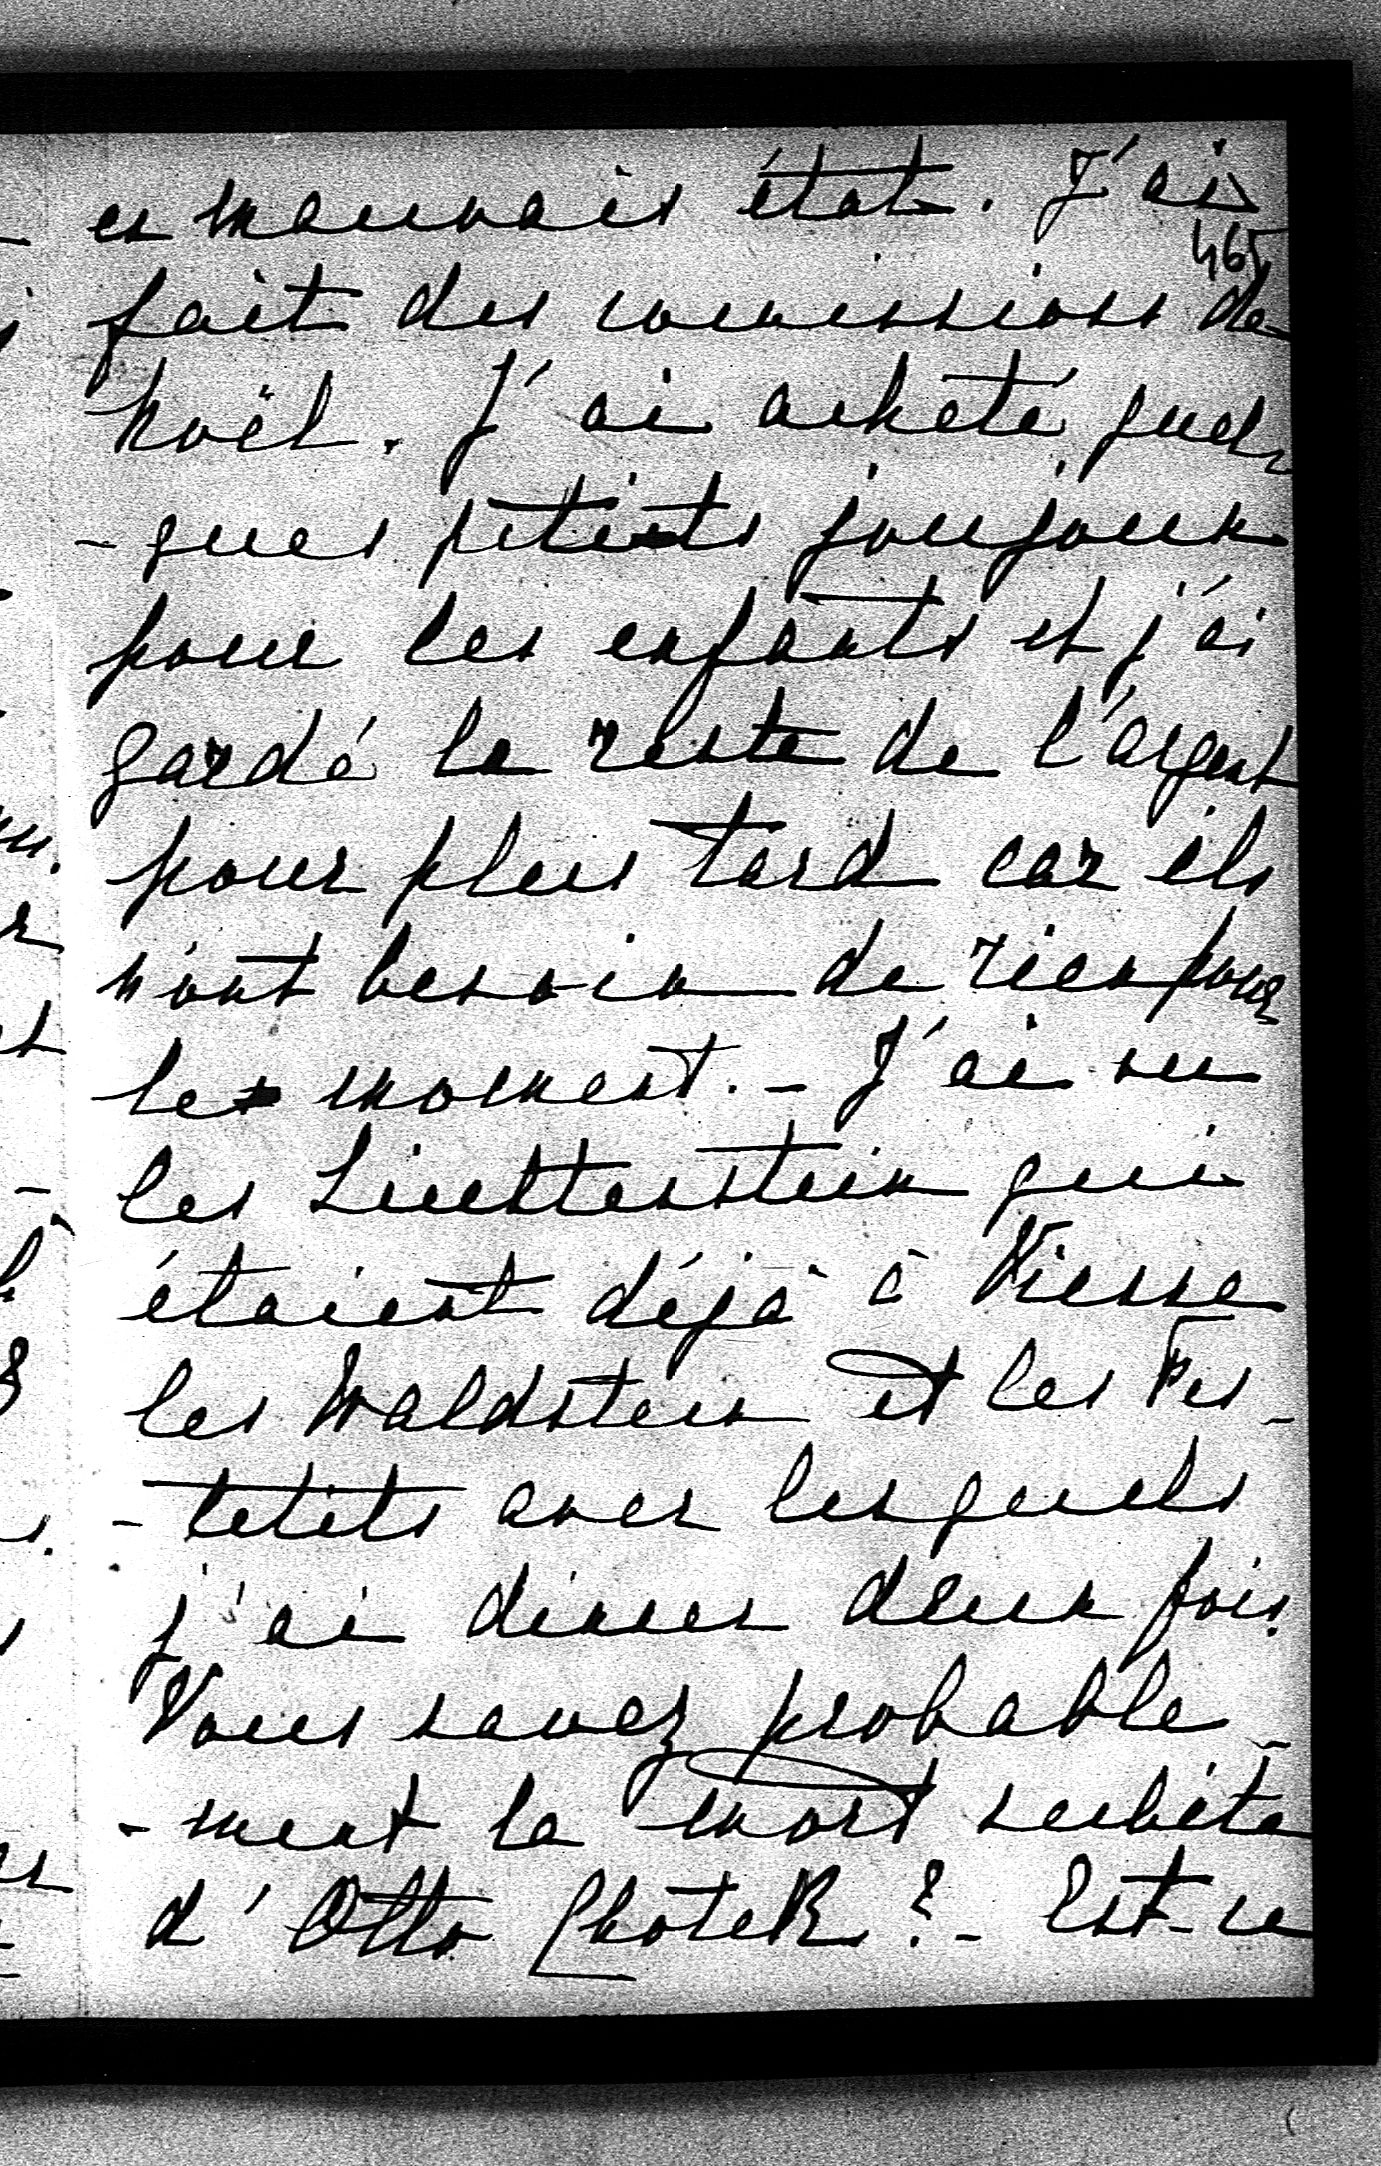 en mauvais état. J'ai
465
fait des comissions de
Noël. J'ai acheté quel-
-ques petits joujoux
pour les enfants et j'ai
gardé le reste de l'argent
pour plus tard car ils
n'ont besoin de rien pour
le moment. - J'ai vu
les Liechtenstein qui
étaient déjà à Vienne
les Waldstein et les Fes-
-tetits avec lesquels
j'ai diner deux fois.
Vous savez probable-
-ment la mort subite
d'Otto Chotek? - Est-ce